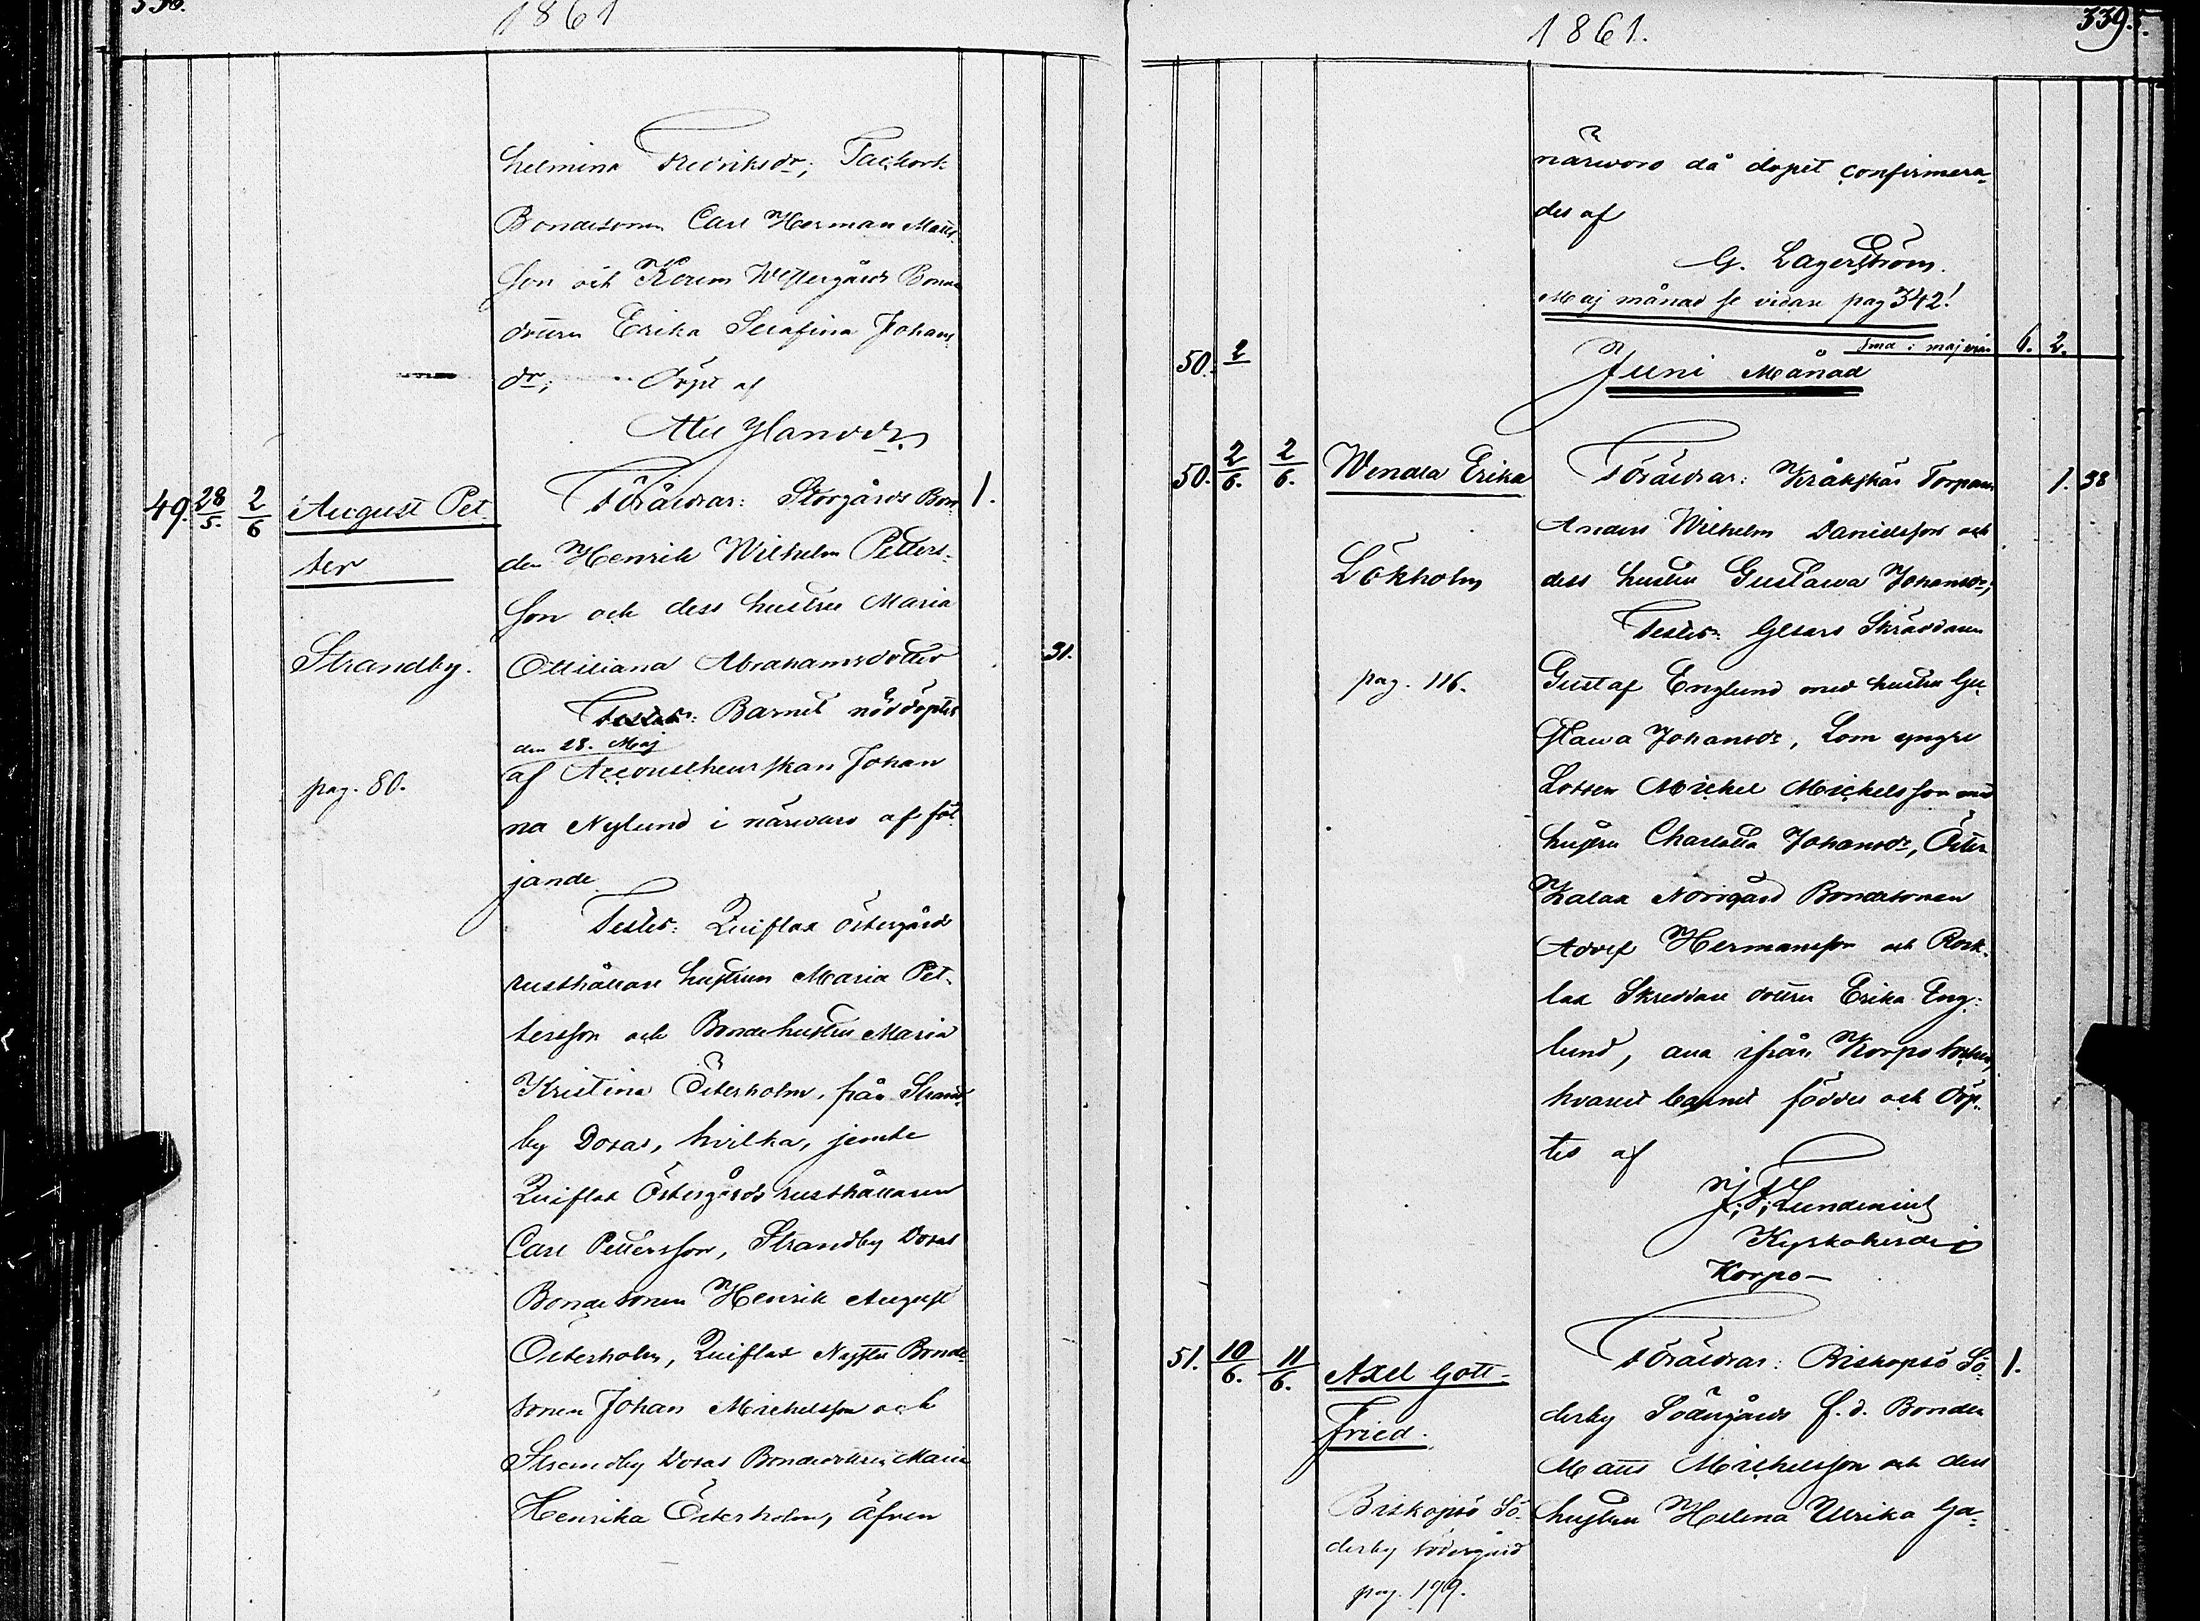 338.
1861
helmina Fredriksdr;
Bondesonen Carl Herman Matts-
son och Westergårds Bonde
dottren Erika Serafina Johans
dr; Döpt af
49. 28/5. 2/6 August Pet
ter
Strandby.
pag. 80.
Föräldrar: Storgårds Bon 1.
den Henrik Wilhelm Petters-
son och dess hustru Maria
Ottiliana Abrahamsdotter 31.
Testes: Barnet nöddöptes
den 28. Maj
af Accoucheurskan Johan
na Nylund i närvaro af föl
jande
Testes: Östergårds
rusthållare hustrun Maria Pet-
tersson och Bondehustru Maria
Kristina Österholm, från Strand
by Doxas, hvilka, jemte
Östergårds rusthållaren
Carl Pettersson, Strandby Doxas
Bondesonen Henrik August
Österholm, Bonde
sonen Johan Michelsson och
Strandby Doxas Bondedottren Maria
Henrika Österholm, äfven
1861.
339.
närvoro då dopet confirmera-
des af
G. Lagerström.
Maj månad se vidare pag 342!
Sma i maj mån 6. 2.
50. 2
Juni Månad
50. 2/6. 2/6. Wendla Erika
Lökholm
pag. 116.
Föräldrar: Kråkskär Torparn 1. 38
Anders Wilhelm Danielsson och
dess hustru Gustawa Johansdr;
Testes: Skräddaren
Gustaf Englund med hustru Gu-
stawa Johansdr, Lom yngre
Lotsen Michel Michelsson med
hustru Charlotta Johansdr, Öster
Kalax Norrgård Bondesonen
Adolf Hermansson och Rosk-
lax Skreddare dottren Erika Eng-
lund, alla ifrån Korpo
hvarest barnet föddes och döp-
tes af
J. F. Lundenius
Kyrkoherde i
Korpo—
51. 10/6. 11/6. Axel Gott-
fried.
Biskopsö Sö-
derby Södergård
pag. 179.
Föräldrar: Biskopsö Sö- 1.
derby Södergårds f. d. Bonden
Matts Michelsson och dess
hustru Helena Ulrika Ga-